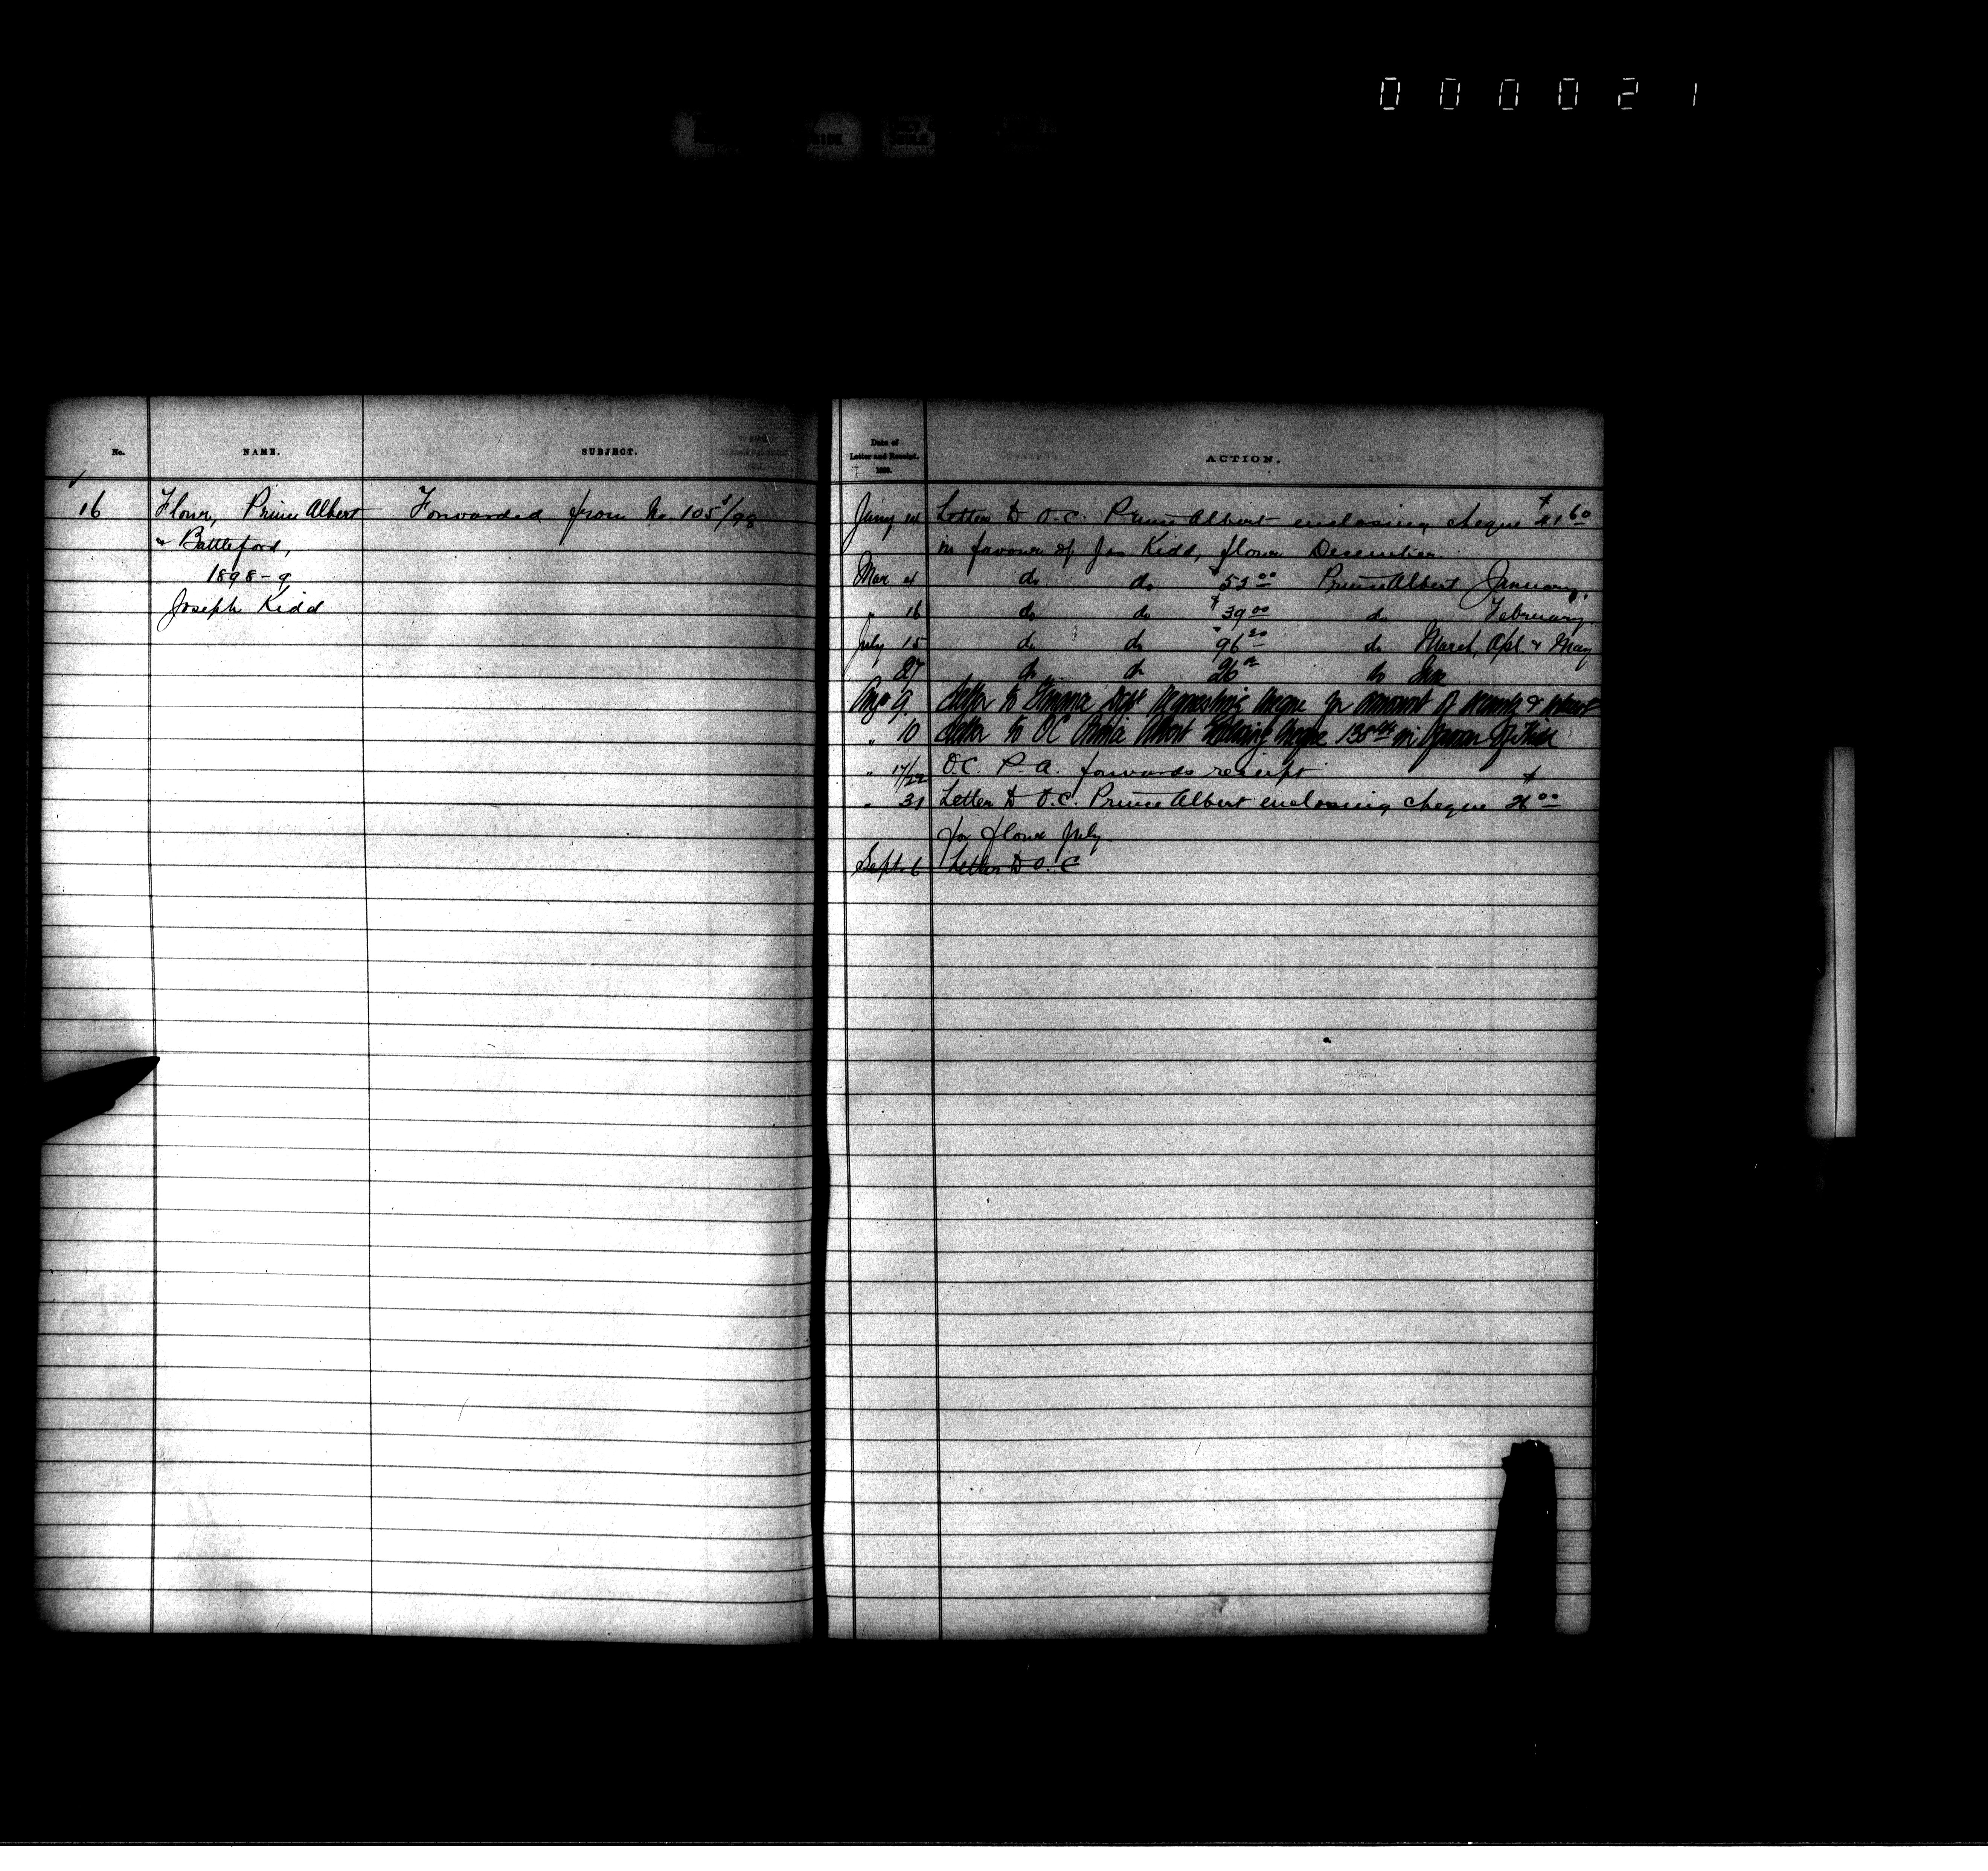 000021
No. NAME. SUBJECT.
16 Flour, Prince Albert Forwarded from No. 105/98
& Battleford,
1898-9
Joseph Kidd
Date of
Letter and Receipt.
1899.
ACTION.
Jany 14 Letter to O.C. Prince Albert enclosing cheque $41.60
in favour of Jos Kidd, flour December
Mar 4 do do $52.00 Prince Albert January.
" 16 do do $39.00 do February
July 15 do do 96.20 do March, Apl & May
27 do do 26.00 do June
Aug 9 Letter to Finance Dept requesting cheque for amount of security &
" 10 Letter to OC Prince Albert cheque in favour of Kidd
" 17/22 O.C. P.A. forwards receipt
" 31 Letter to O.C. Prince Albert enclosing cheque $26.00
for flour July
Sept. 6 Letter to O.C